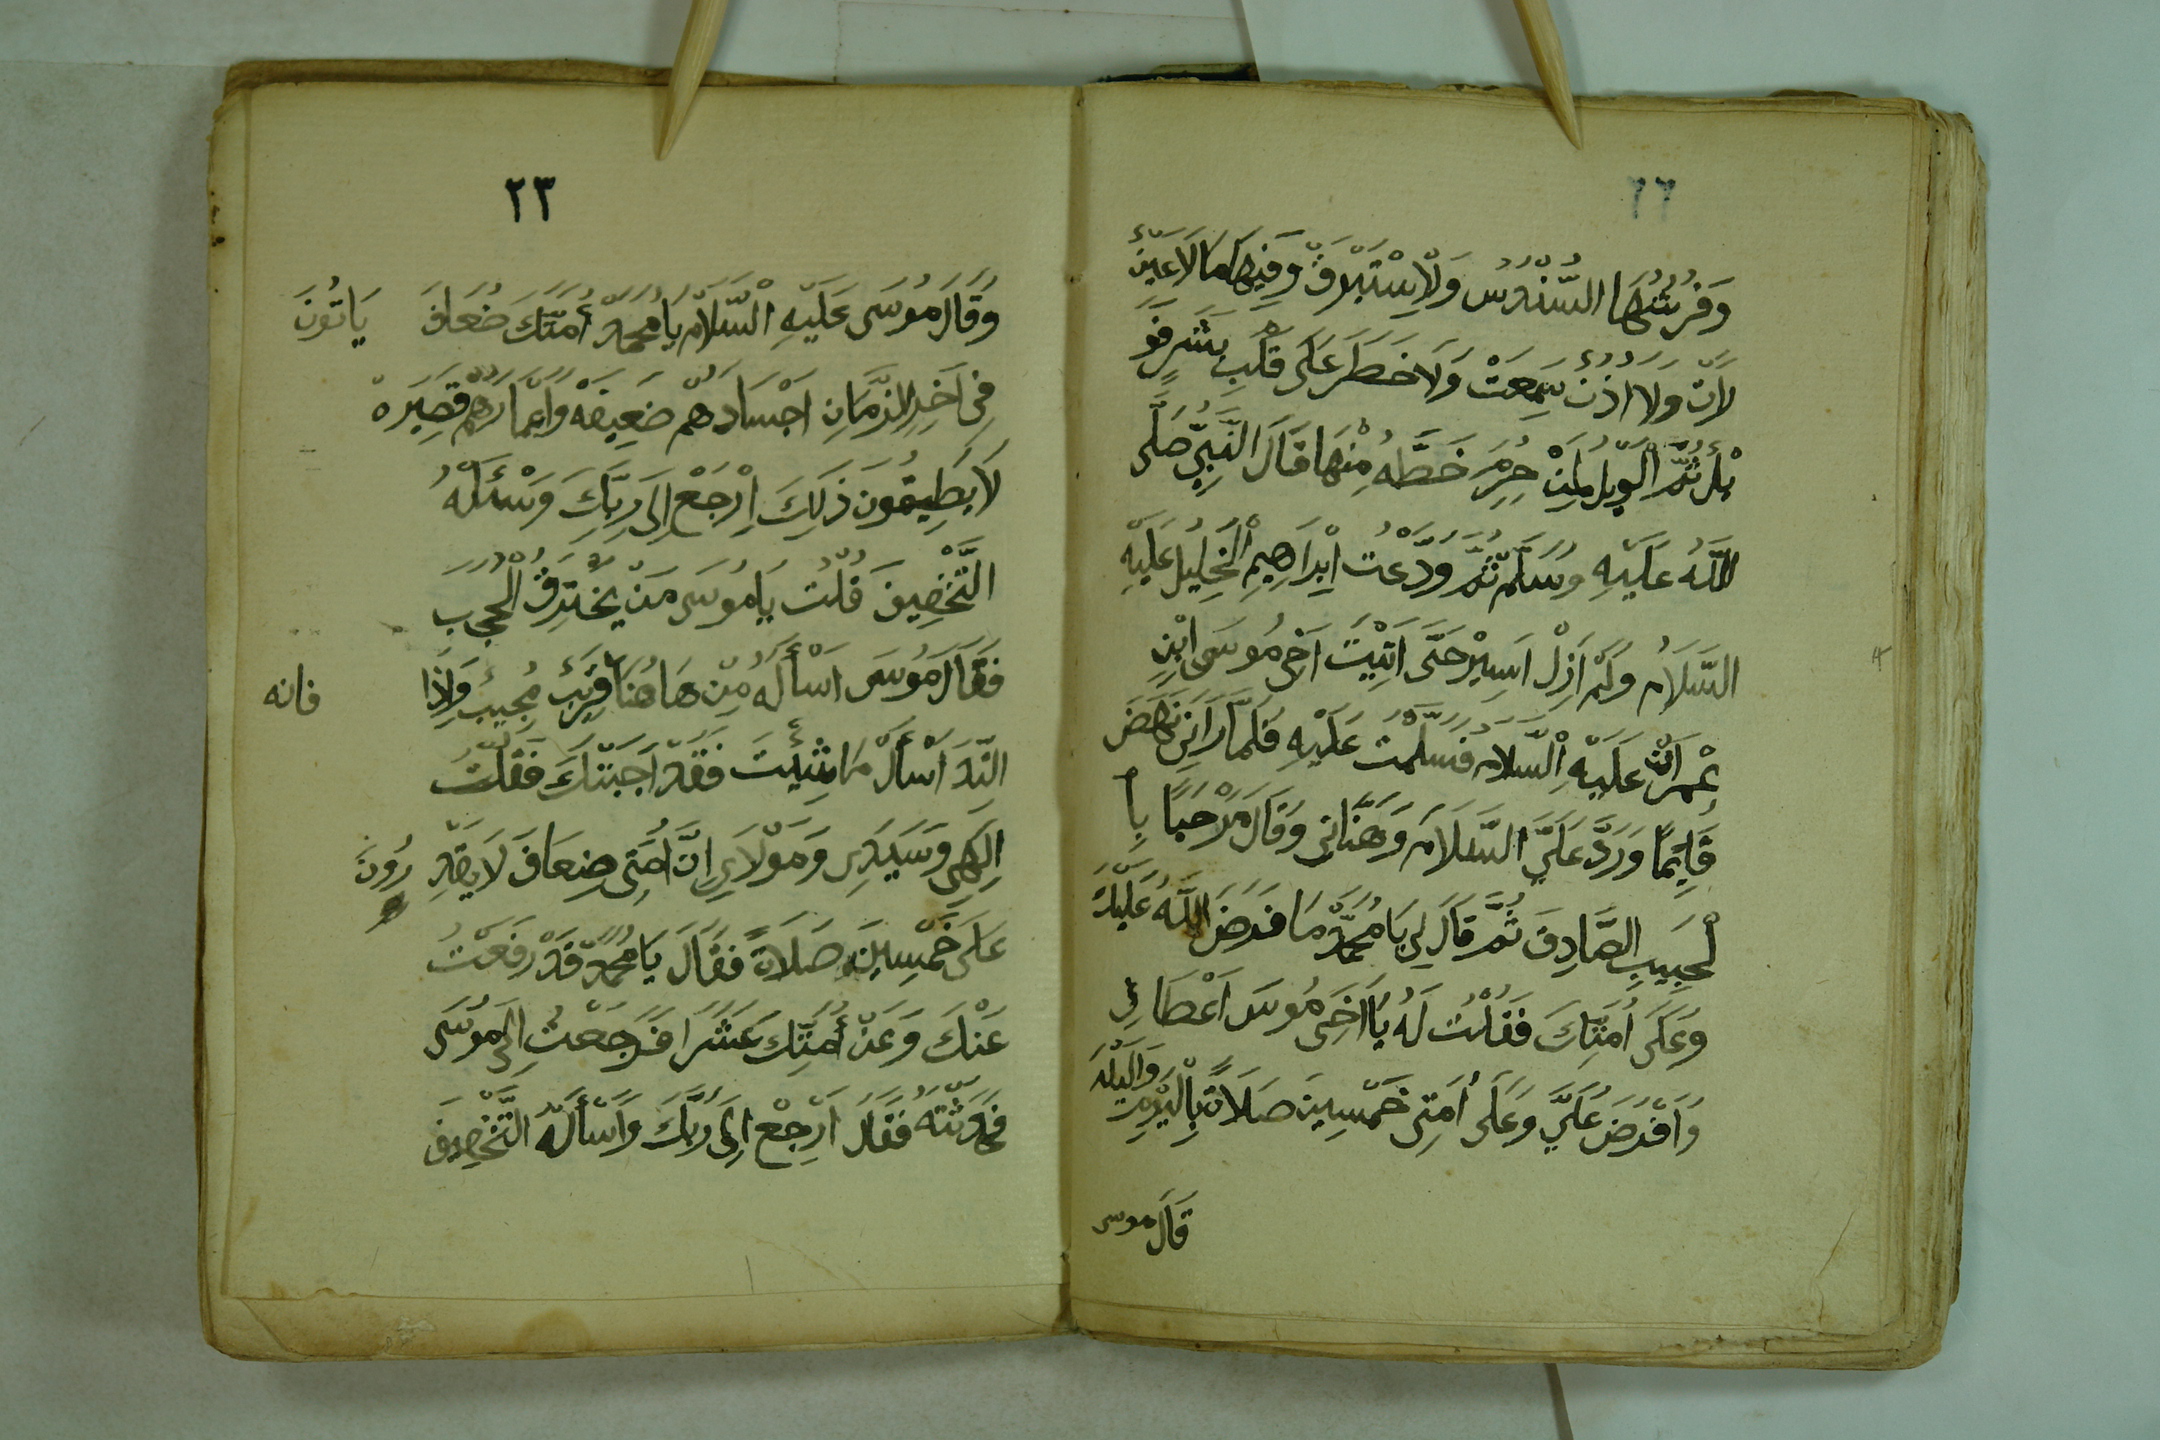 ٢٢
وَفَرْشُهَا السُّنْدُسُ وَلْاِسْتَبْرَقْ وَفِيهَا مَا لَا عَيْنٌ
رَاَتْ وَلَا اُذُنٌ سَمِعَتْ وَلَا خَطَرَ عَلَى قَلْبِ بَشَرٍ فَوَ
يْلُ ثُمَّ الْوَيْلُ لِمَنْ حُرِمَ حَظَّهُ مِنْهَا قَالَ النَّبِيُّ صَلَّى
اللَّهُ عَلَيْهِ وَسَلَّمْ ثُمَّ وَدَّعْتُ اِبْرَاهِيمِ الْخَلِيلُ عَلَيْهِ
السَّلَامُ وَلَمْ اَزِلْ اَسِيْرُ حَتَّى اَتَيْتُ اَخِي مُوسَى ابْنِ
عِمْرَانْ عَلَيْهِ السَّلَامْ فَسَلَّمْتُ عَلَيْهِ فَلَمَّا رَاَنِي نَهَضَ
قَايِمًا وَرَدَّ عَلَيَّ السَّلَامَ وَهَنَّانِي وَقَالَ مَرْحَبًا بِا
لْحَبِيبِ الصَّادِقِ ثُمَّ قَالَ لِي يَا مُحَمَّدْ مَا فَرَضَ اللَّهُ عَلَيْكَ
وَعَلَى اُمَّتِكَ فَقُلْتُ لَهُ يَا اَخِي مُوسَى اَعْطَانِي
وَافْرَضَ عَلَيَّ وَعَلَى اُمَتِى خَمْسِينَ صَلَاةً بِالْيَوْمِ وَالَيْلَه
قَالَ موسى
٢٣
وَقَالَ مُوسَى عَلَيْهِ السَّلَامْ يَا مُحَمَّدْ أُمَّتُكَ ضُعَافَ يَاتُونَ
فِى اَخِرِ الزَّمَانِ اَجْسَادُهُمْ ضَعِيفَه وَاَعْمَارُهُمْ قَصِيَرهْ
لَا يَطِيقُونَ ذَلِكَ اِرْجَعْ اِلَى رَبِّكَ وَسْئَلْهُ
التَّخْفِيفَ قُلْتُ يَا مُوسَى مَنْ يَخْتَرِقُ الْحُجُبَ
فَقَالَ مُوسَى اسْأَلْهُ مِنْ هَاهُنَا قَرِيبٌ مُجِيبٌ وَاِذَا فانه
النِّدَ اسْأَلْ مَا شِئْتَ فَقَدْ اَجَبْتُكَ فَقُلْتُ
اِلَهِي وَسَيِّدِى وَمَوْلَايِ اِنَّ اُمَّتِى ضِعَافَ لَا يَقْدِرُونَ
عَلَى خَمْسِينَ صَلَاةً فَقَالَ يَا مُحَمَّدْ قَدْ رَفَعْتُ
عَنْكَ وَعَنْ أُمَّتِكَ عَشْرًا فَرَجَعْتُ اِلَى مُوسَى
فَحَدَثْتُهُ فَقَالَ ارْجِعْ اِلَى رَبِّكَ وَاسْأَلْهُ التَّخْفِيفَ